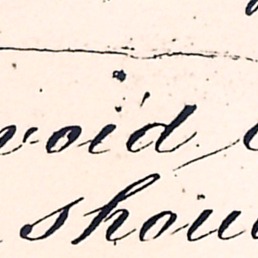 void
shou